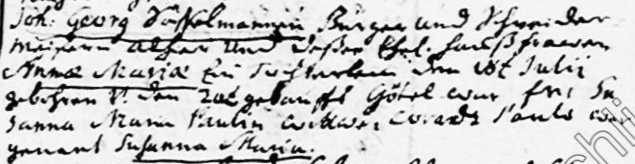 Joh: Georg Düsselmannen Bürger und Schneider
meistern alhier und dessen Ehel. haußfrawen
Annæ Mariæ Ein Töchterlein den 18t Julii
gebohren V. den 20t getaufft Götel war frn Su
sanna Maria Paulin wittwe Conradt Pauls
genant Susanna Maria.